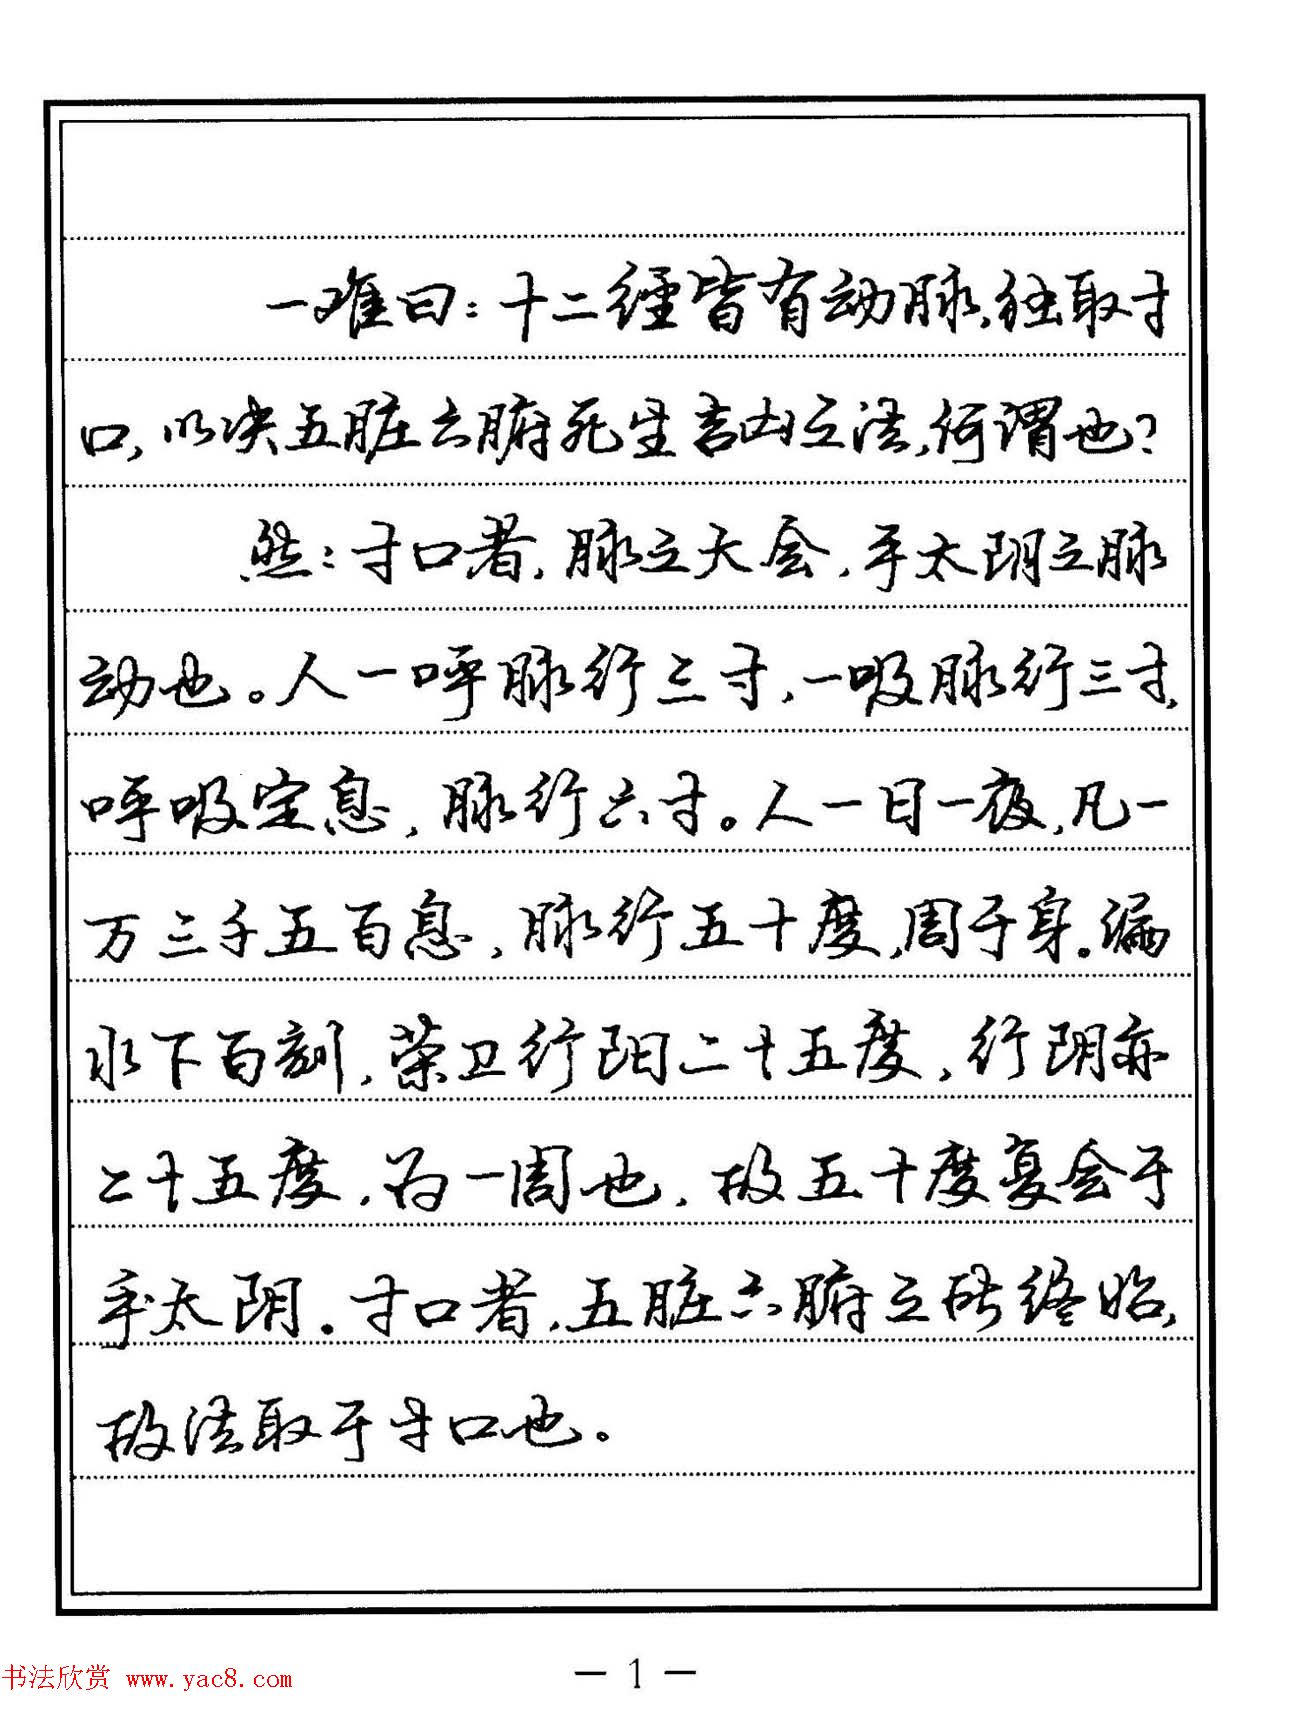 一难曰：十二經皆有动脉，独取寸
口，以决五脏六腑死生吉凶之法，何谓也？
然：寸口者，脉之大会，手太阴之脉
动也。人一呼脉行三寸，一吸脉行三寸，
呼吸定息，脉行六寸。人一日一夜，凡一
万三千五百息，脉行五十度，周于身。漏
水下百刻，荣卫行阳二十五度，行阴亦
二十五度，为一周也，故五十度复会于
手太阴。寸口者，五脏六腑之所终始，
故法取于寸口也。
— 1 —
书法欣赏 www.yac8.com